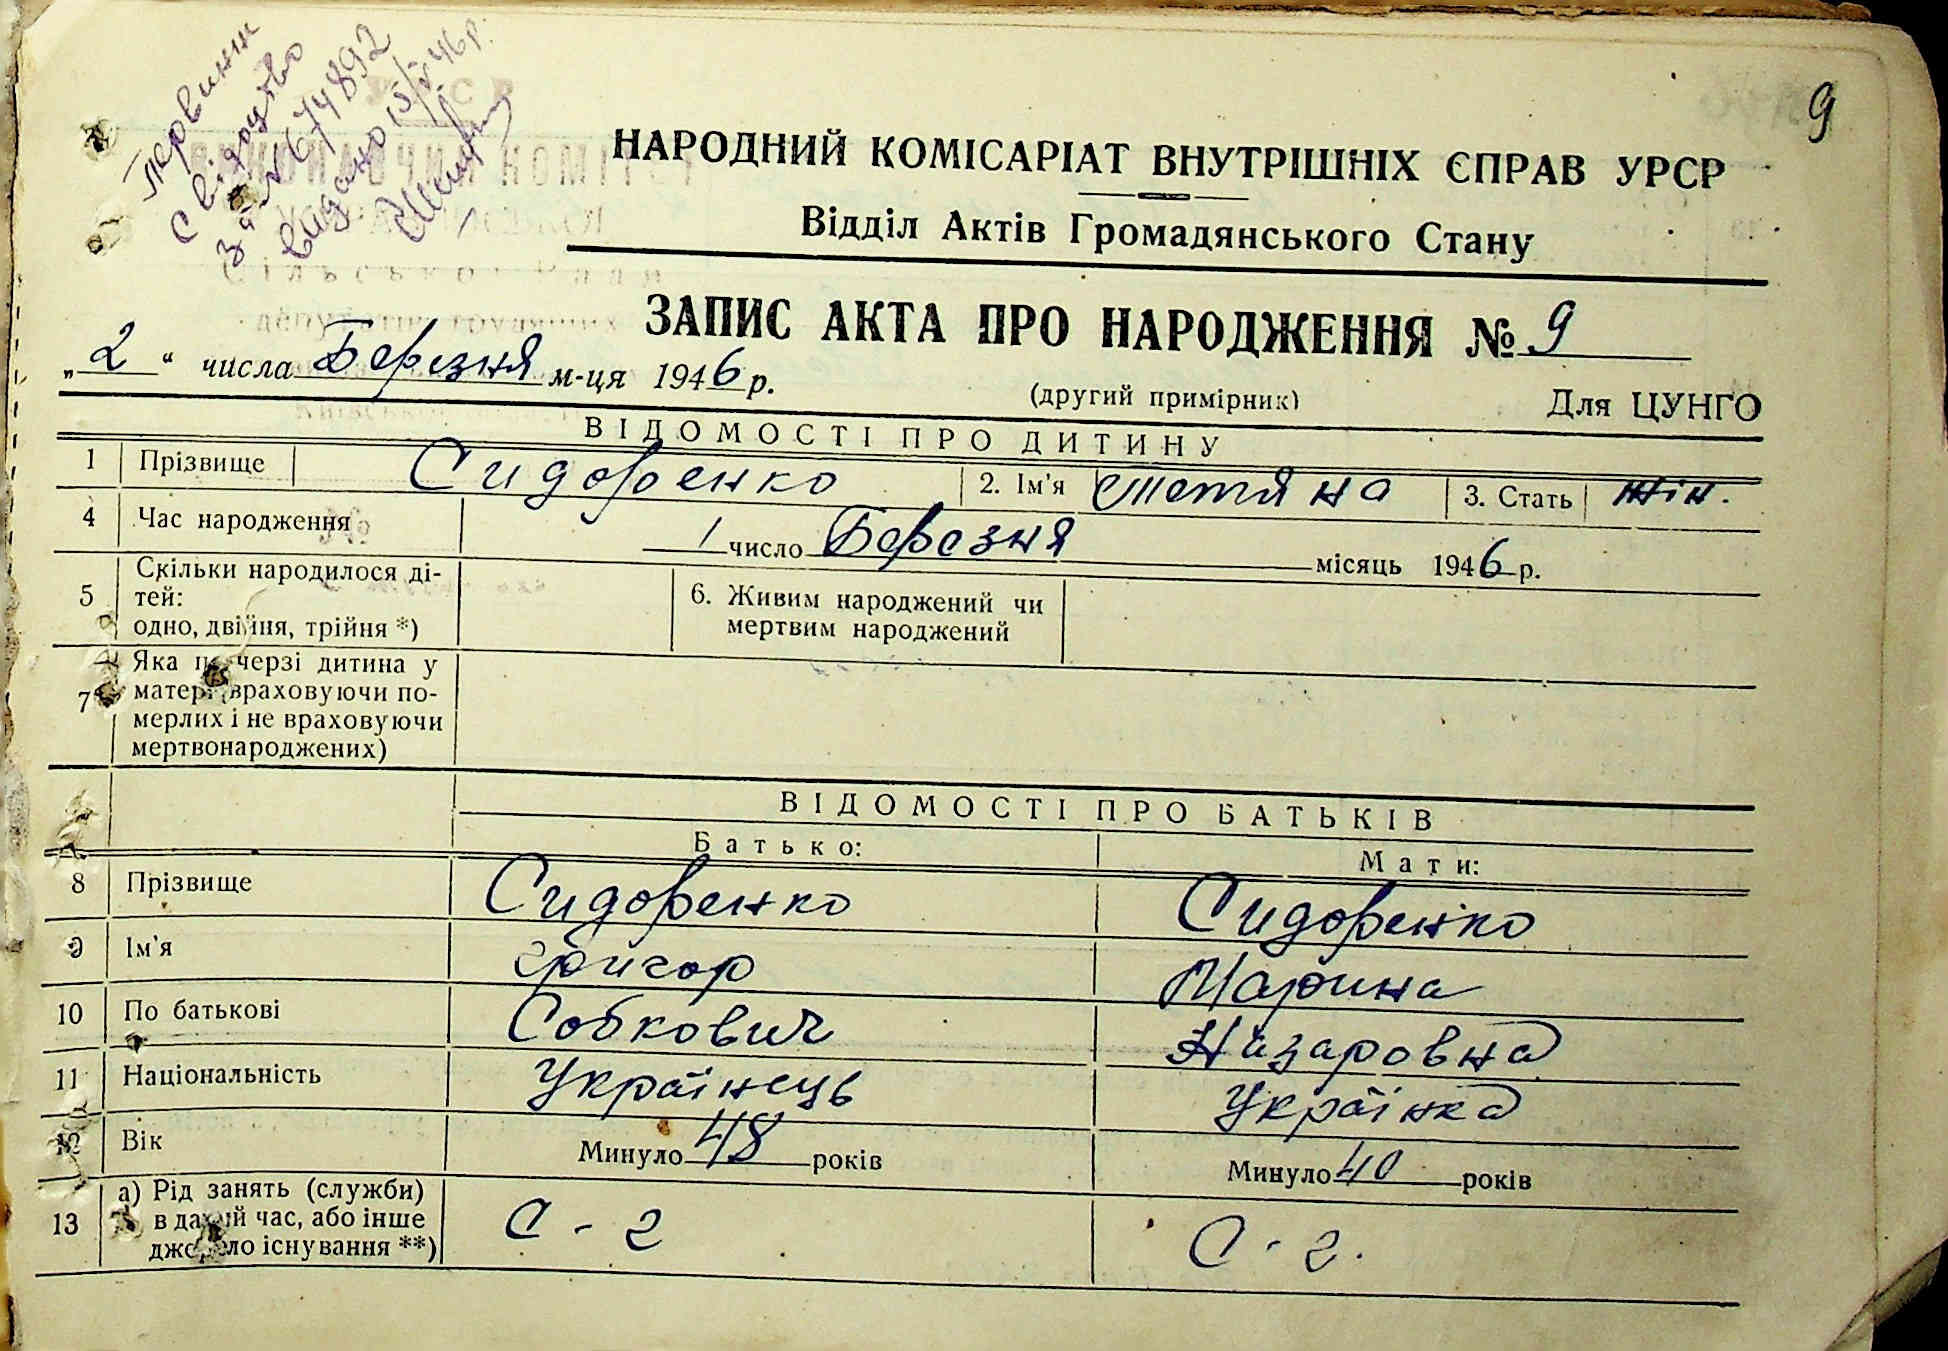 9
Первинн
свідоцтво
за № 674892
видано 15/V 46 р.
НАРОДНИЙ КОМІСАРІАТ ВНУТРІШНІХ ЄПРАВ УРСР
Відділ Актів Громадянського Стану
ЗАПИС АКТА ПРО НАРОДЖЕННЯ № 9
„ 2 “ числа Березня м-ця 1946 р.
(другий примірник) Для ЦУНГО
ВІДОМОСТІ ПРО ДИТИНУ
1 Прізвище Сидоренко 2. Ім'я Тетяна 3. Стать жін.
4 Час народження 1 число Березня місяць 1946 р.
5 Скільки народилося ді-
тей:
одно, двійня, трійня *)
6. Живим народжений чи
мертвим народжений
7 Яка по черзі дитина у
матері (враховуючи по-
мерлих і не враховуючи
мертвонароджених)
ВІДОМОСТІ ПРО БАТЬКІВ
Батько: Мати:
8 Прізвище Сидоренко Сидоренко
9 Ім'я Григор Марина
10 По батькові Собкович Назаровна
11 Національність Українець Українка
12 Вік Минуло 48 років Минуло 40 років
13 а) Рід занять (служби)
в даний час, або інше
джерело існування **)
С - г С - г.